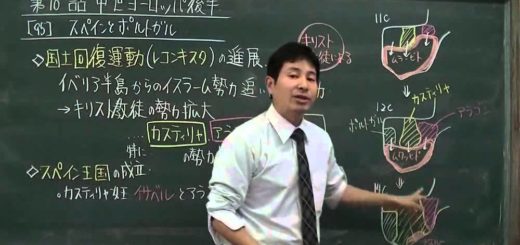 第10話 中世ヨーロッパ後半
[95] スペインとポルトガル
◇国土回復運動(レコンキスタ)の進展
キリスト
徒による
イベリア半島からのイスラーム勢力
→キリスト教徒の勢力拡大
カスティリャ アラ
特に
の勢力
◇スペイン王国の成立
○カスティリャ女王イサベルとアラ
11C
ムラービト
12C
カスティリャ
ポルトガル
アラゴン
ムワッヒド
14C